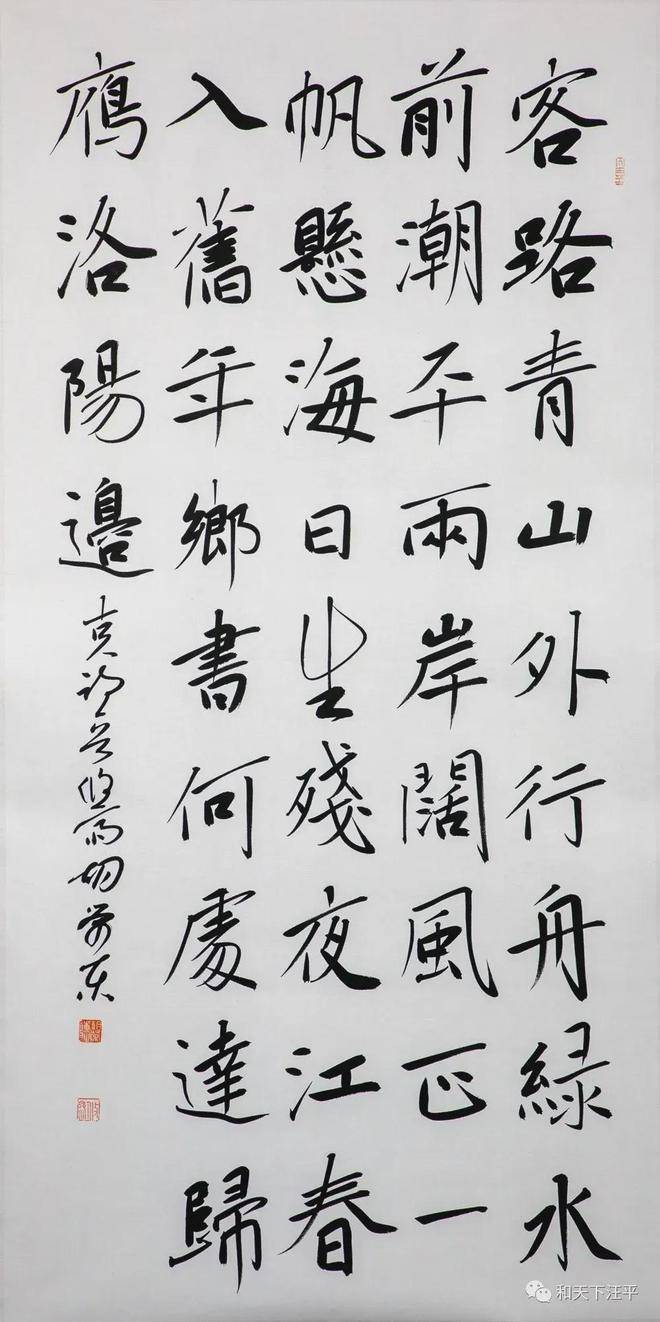 客路青山外行舟緑水
前潮平兩岸闊風正一
帆懸海日生殘夜江春
入舊年鄉書何處達歸
鴈洛陽邊
和天下汪平